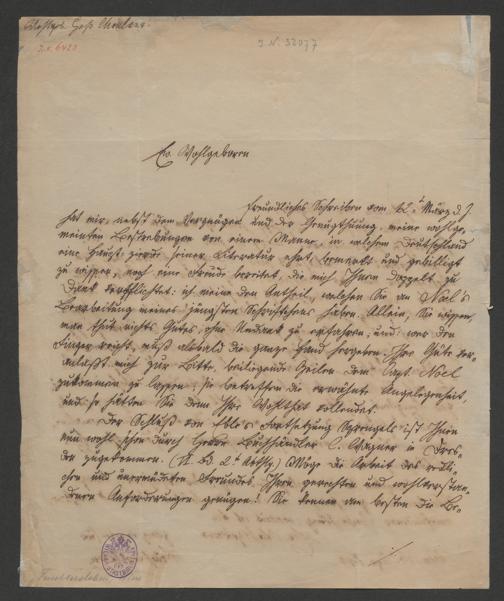 I.N. 32077
Ew. Wohlgeboren
freundliches Schreiben vom 12. März d. J.
hat mir, nebst dem Vergnügen und der Genugthuung, meine wohlge-
meinten Bestrebungen von einem Manne, in welchem Deutschland
eine Hauptzierde seiner Literatur ehrt, bemerkt und gebilligt
zu wissen, noch eine Freude bereitet, die mich Ihnen doppelt zu
Dank verpflichtet: ich meine den Antheil, welchen Sie an Noel's
Bearbeitung meines jüngsten Schriftchens haben. Allein, Sie wissen,
man thut nichts Gutes, ohne Undank zu erfahren, und wer den
Finger reicht, muß alsbald die ganze Hand hergeben. Ihre Güte ver-
anlaßt mich zur Bitte, beiliegende Zeilen dem Capt. Noel
zukommen zu lassen; sie betreffen die erwähnte Angelegenheit,
und so hätten Sie denn Ihre Wohlthat vollendet.
Der Schluß von Eble's Fortsetzung Sprengels ist Ihnen
nun wohl schon durch Herrn Buchhändler C. Wagner in Dres-
den zugekommen. (VI. Bd. 2te Abthlg.) Möge die Arbeit des redli-
chen und unermüdeten Freundes Ihren gerechten und wohlverstan-
denen Anforderungen genügen! Sie kennen am besten die Be-
Feuchtersleben